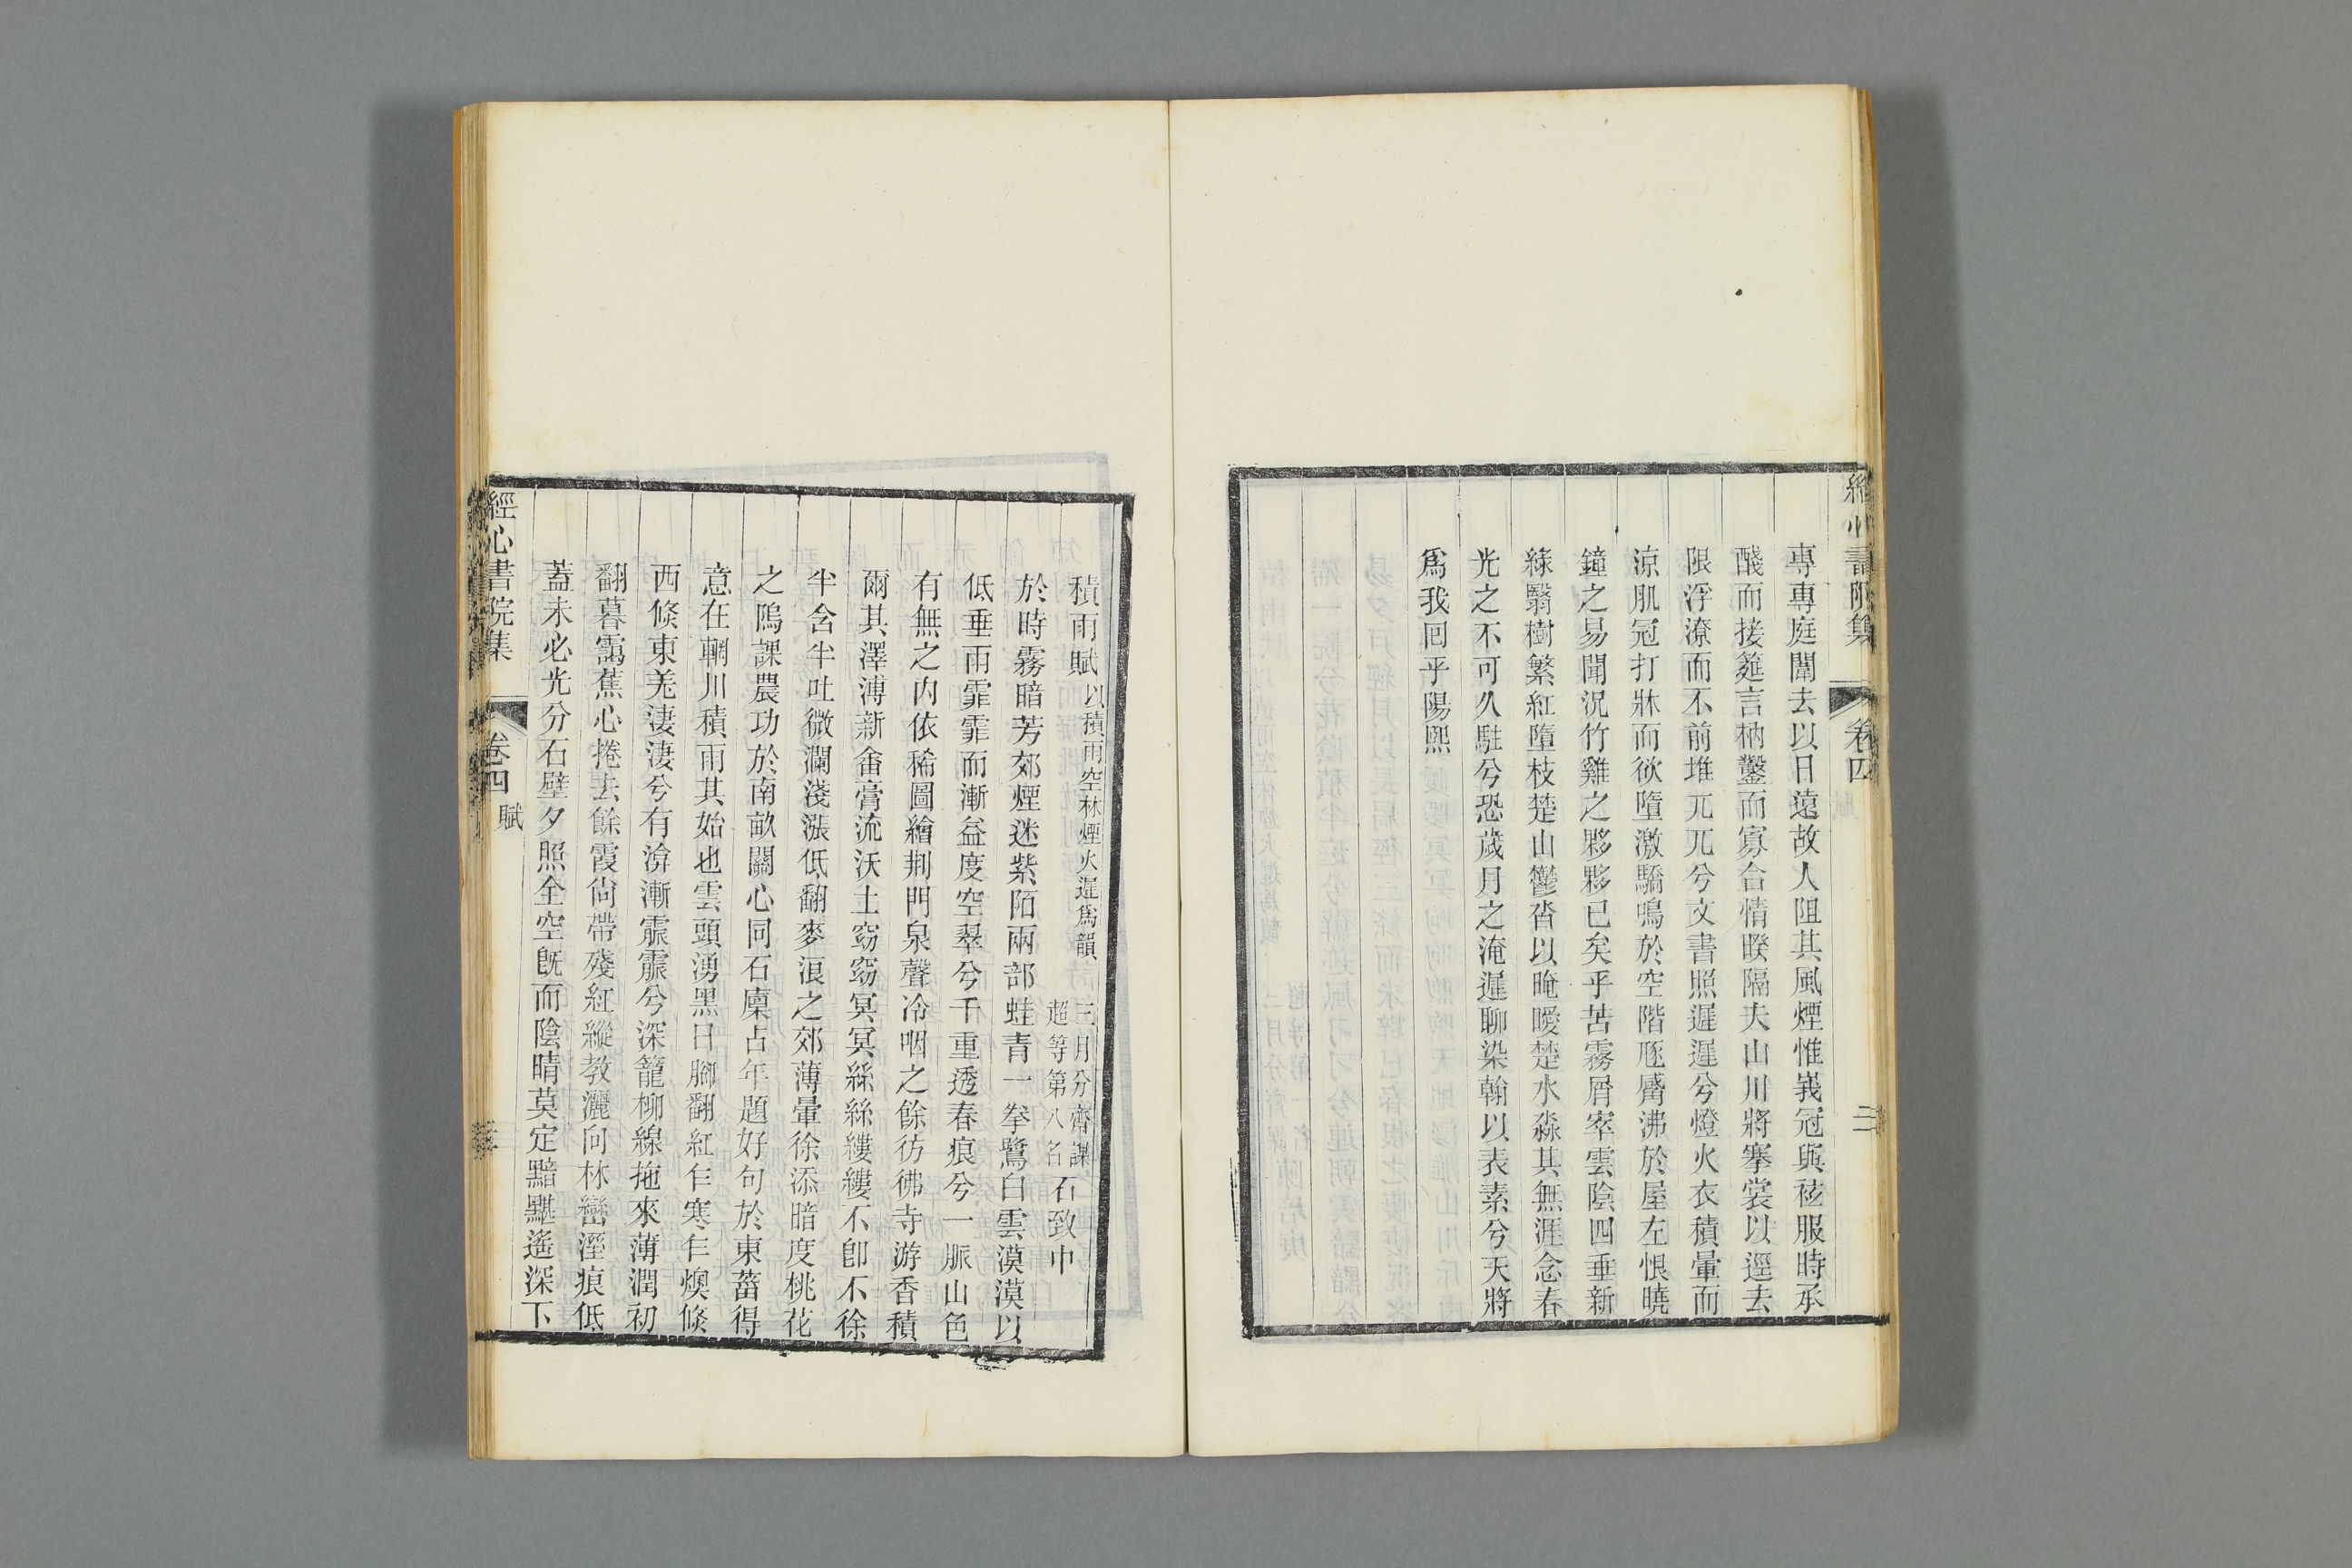 經心書院集 卷四 二
專專庭闈去以日遠故人阻其風煙惟峩冠與袨服時承
醆而接筵言枘鑿而寡合情暌隔夫山川將搴裳以逕去
限浮潦而不前堆兀兀兮文書照遲遲兮燈火衣積暈而
涼肌冠打牀而欲墮激驕鳴於空階 沸於屋左恨曉
鐘之易聞況竹雞之夥夥已矣乎苦霧屑窣雲陰四垂新
綠翳樹繁紅墮枝楚山鬱沓以晻曖楚水淼其無涯念春
光之不可久駐兮恐歲月之淹遲聊染翰以表素兮天將
爲我回乎陽熙
積雨賦以積雨空林煙火遲爲韻 三月分齋課超等第八名 石致中
於時霧暗芳郊煙迷紫陌兩部蛙青一拳鷺白雲漠漠以
低垂雨霏霏而漸益度空翠兮千重透春痕兮一脈山色
有無之內依稀圖繪荆門泉聲冷咽之餘彷彿寺游香積
爾其澤溥新畬膏流沃土窈窈冥冥絲絲縷縷不卽不徐
半含半吐微瀾淺漲低翻麥浪之郊薄暈徐添暗度桃花
之隖課農功於南畝關心同石廩占年題好句於東菑得
意在輞川積雨其始也雲頭湧黑日腳翻紅乍寒乍燠倏
西倏東羌淒淒兮有渰漸霢霢兮深籠柳線拖來薄潤初
翻暮靄蕉心捲去餘霞尙帶殘紅縱教灑向林巒溼痕低
蓋未必光分石壁夕照全空旣而陰晴莫定黯黮遙深下
經心書院集 卷四 賦